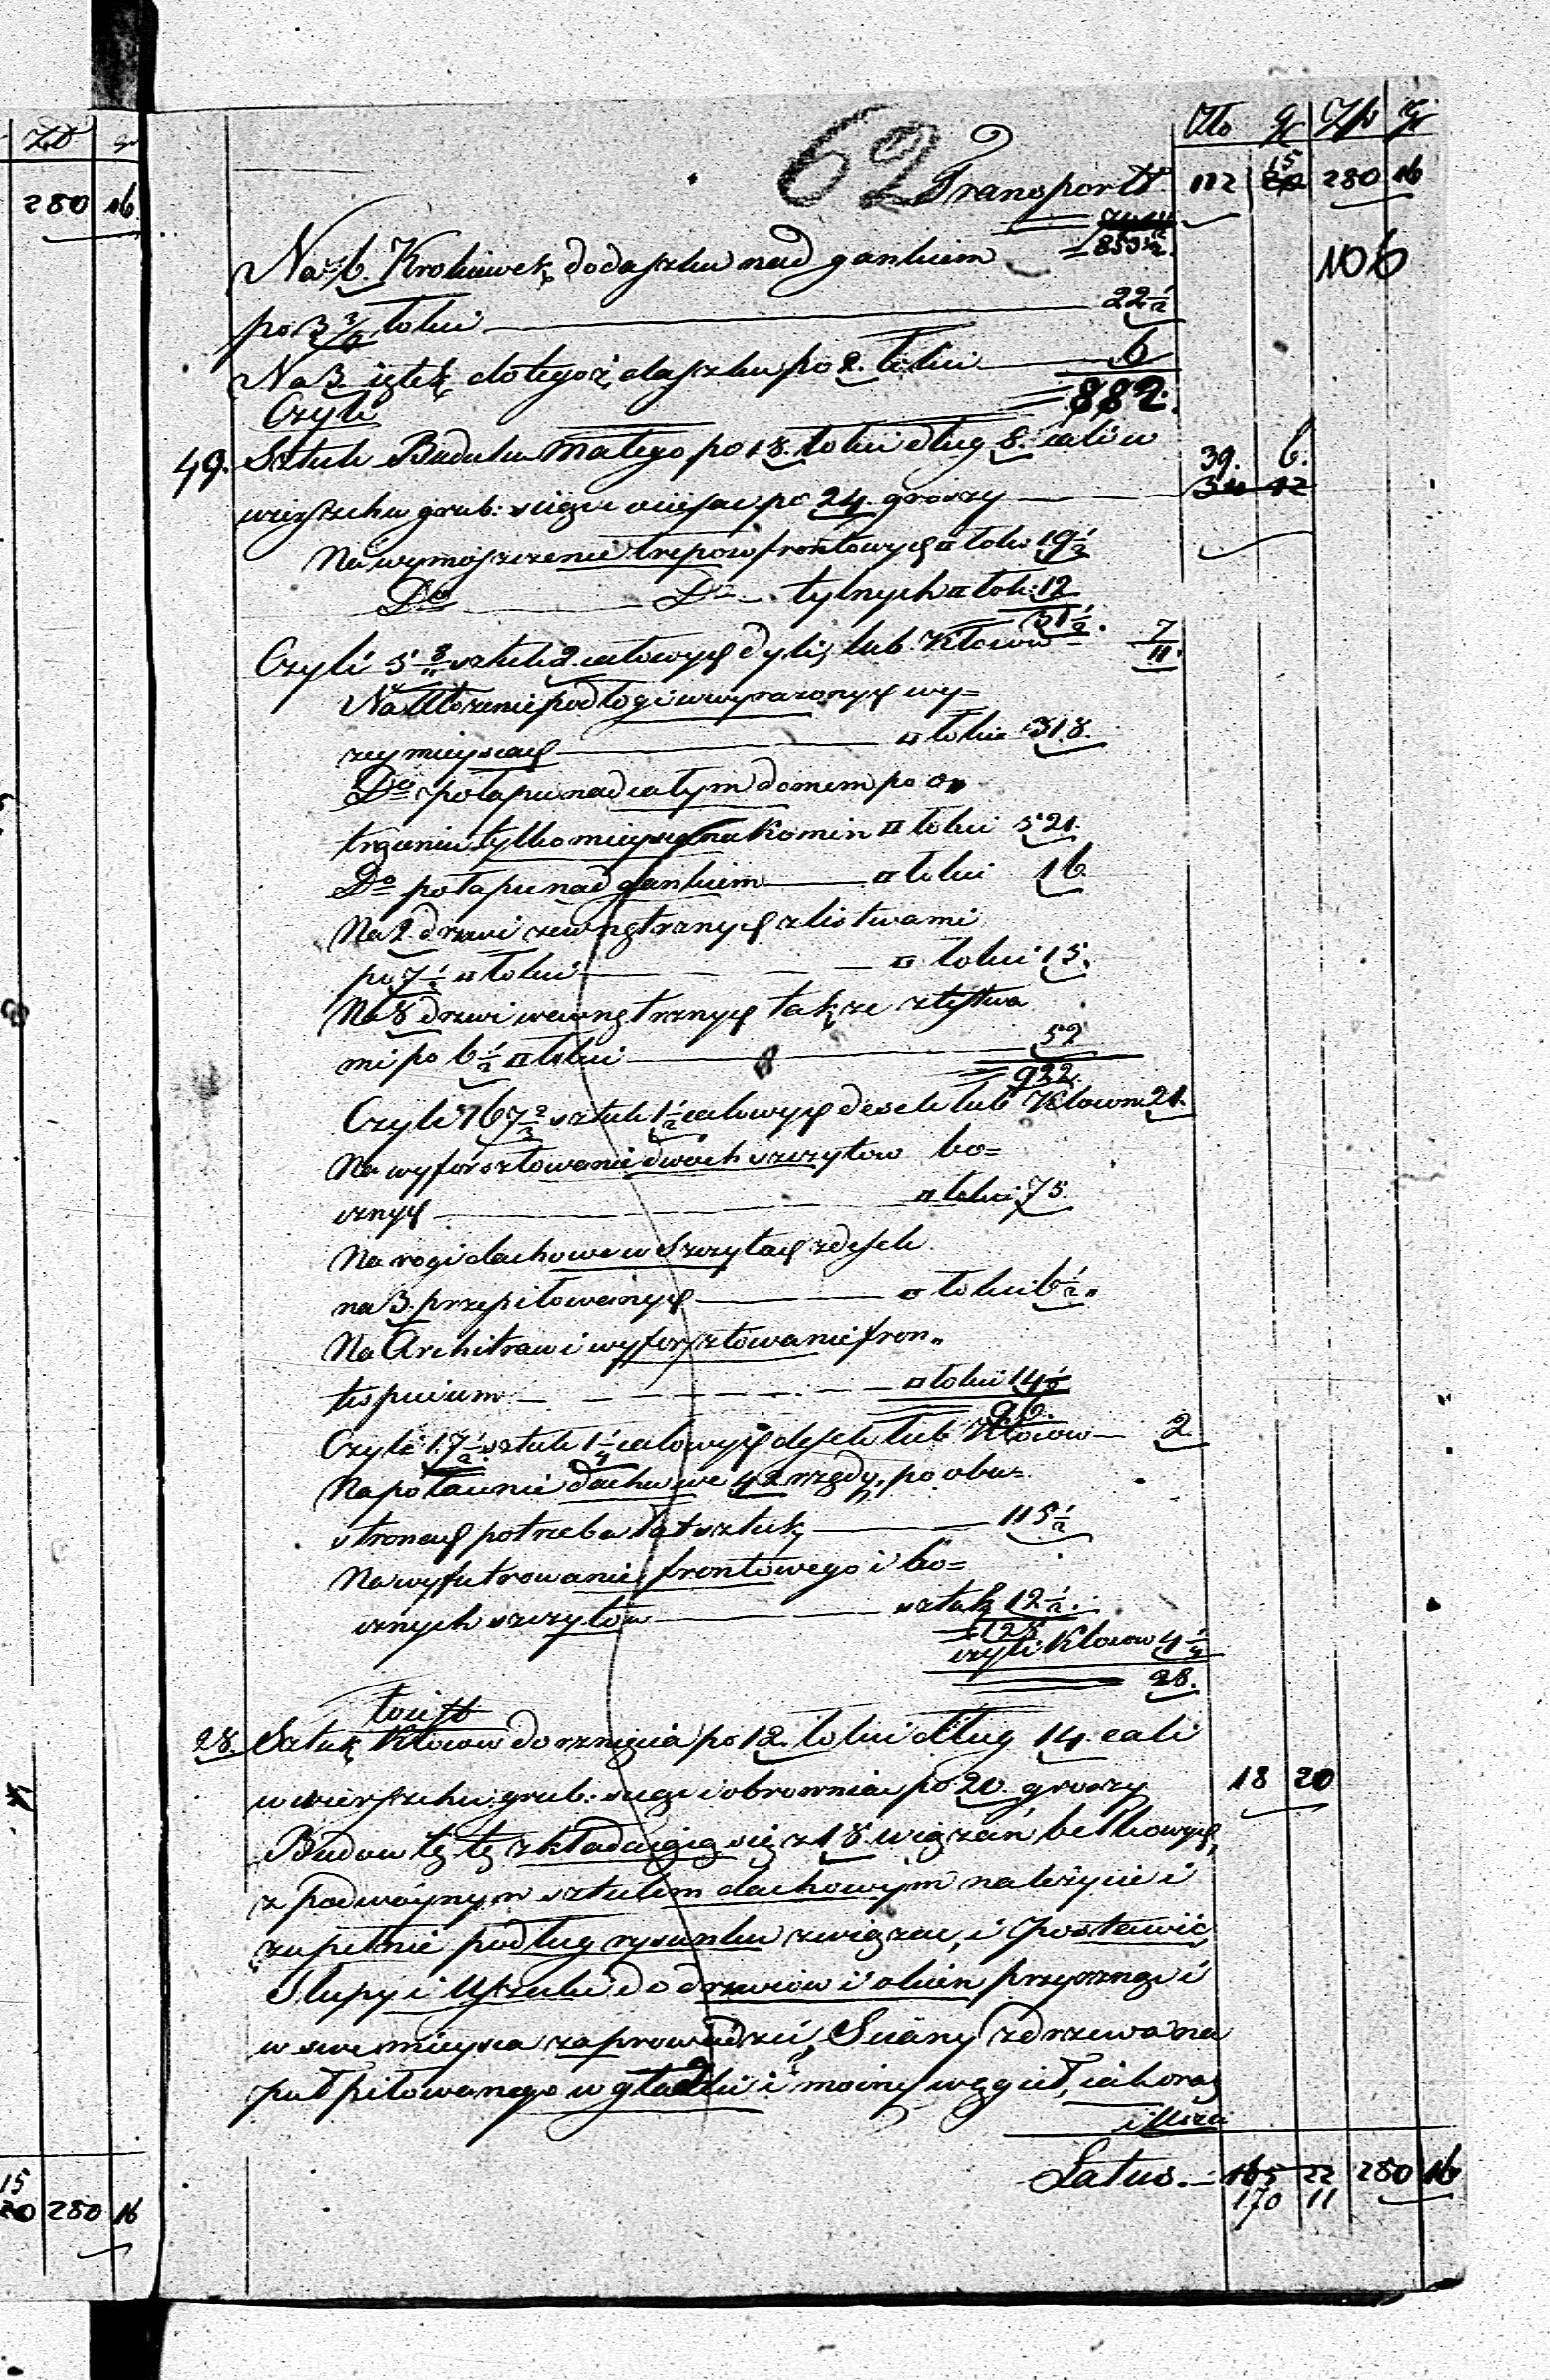 ZP gr
280 16
Zło gr Zp gr
62 Transport 112 15 280 16
Na 6. Krokiewek do daszku nad gankiem = 853½.
106
po 3¾ łokci 22½
Na 3. iętek do tegoż daszku po 2. łokci 6
Czyli = 882.
49. Sztuk Budulcu Małego po 18. łokci dług 8. cali w 39. 6.
wierzchu grub: po 24 groszy 34 12
Na wymoszczenie trepow frontowych □ łok: 19½
Do Do tylnych □ łok: 12
= 31½.
Czyli sztuk 2 calowych dyli, lub Klocow 7/11.
Na Ułożenie podłogi w wyrazonych wy=
zey mieyscach □ łokci 318.
Do połapu nad całym domem po o„
trąceniu tylko mieysca na Komin □ łokci 521.
Do połapu nad gankiem □ łokci 16
Na 2 drzwi zewnętrznych z listwami
po 7½ □ łokci □ łokci 15.
Na 8 drzwi wewnętrznych także z listwa
mi po 6½ □ łokci 52
= 922.
Czyli 167⅔ sztuk 1½ calowych desek lub Klocow 21.
Na wyforsztowanie dwoch szczytow bo=
cznych □ łokci 75.
Na rogi dachowe w Szczytach z desek
na 3. przepiłowanych □ łokci 6½.
Na Architraw i wyforsztowanie fron„
tispicium □ łokci 14½
= 96.
Czyli 17½ sztuk 1¼ calowych desek lub Klocow 2.
Na połacenie dachu we 42 rzędy, po obu=
stronach potrzeba łat sztuk 115½
Na wyfutrowanie frontowego i bo=
cznych szczytow sztuk 12½.
= 128
czyli Klocow 4¼
= 28.
28. Sztuk Klocow do rznięcia po 12. łokci dług 14. cali
w wierzchu grub: po 20 groszy 18 20
Budowlę tę składaiącą się z 18. wiązań belkowych,
z podwoynym sztulem dachowym należycie i
zupełnie podług rysunku związać, i postawić,
Słupy i Uszaki do drzwiow i okien przyrznąć i
w swe mieysca zaprowadzić, Sciany z drzewa na
puł piłowanego w gładki i mocny węgieł, iako raz
Latus. 165 22 280 16
170 11
15
20 280 16